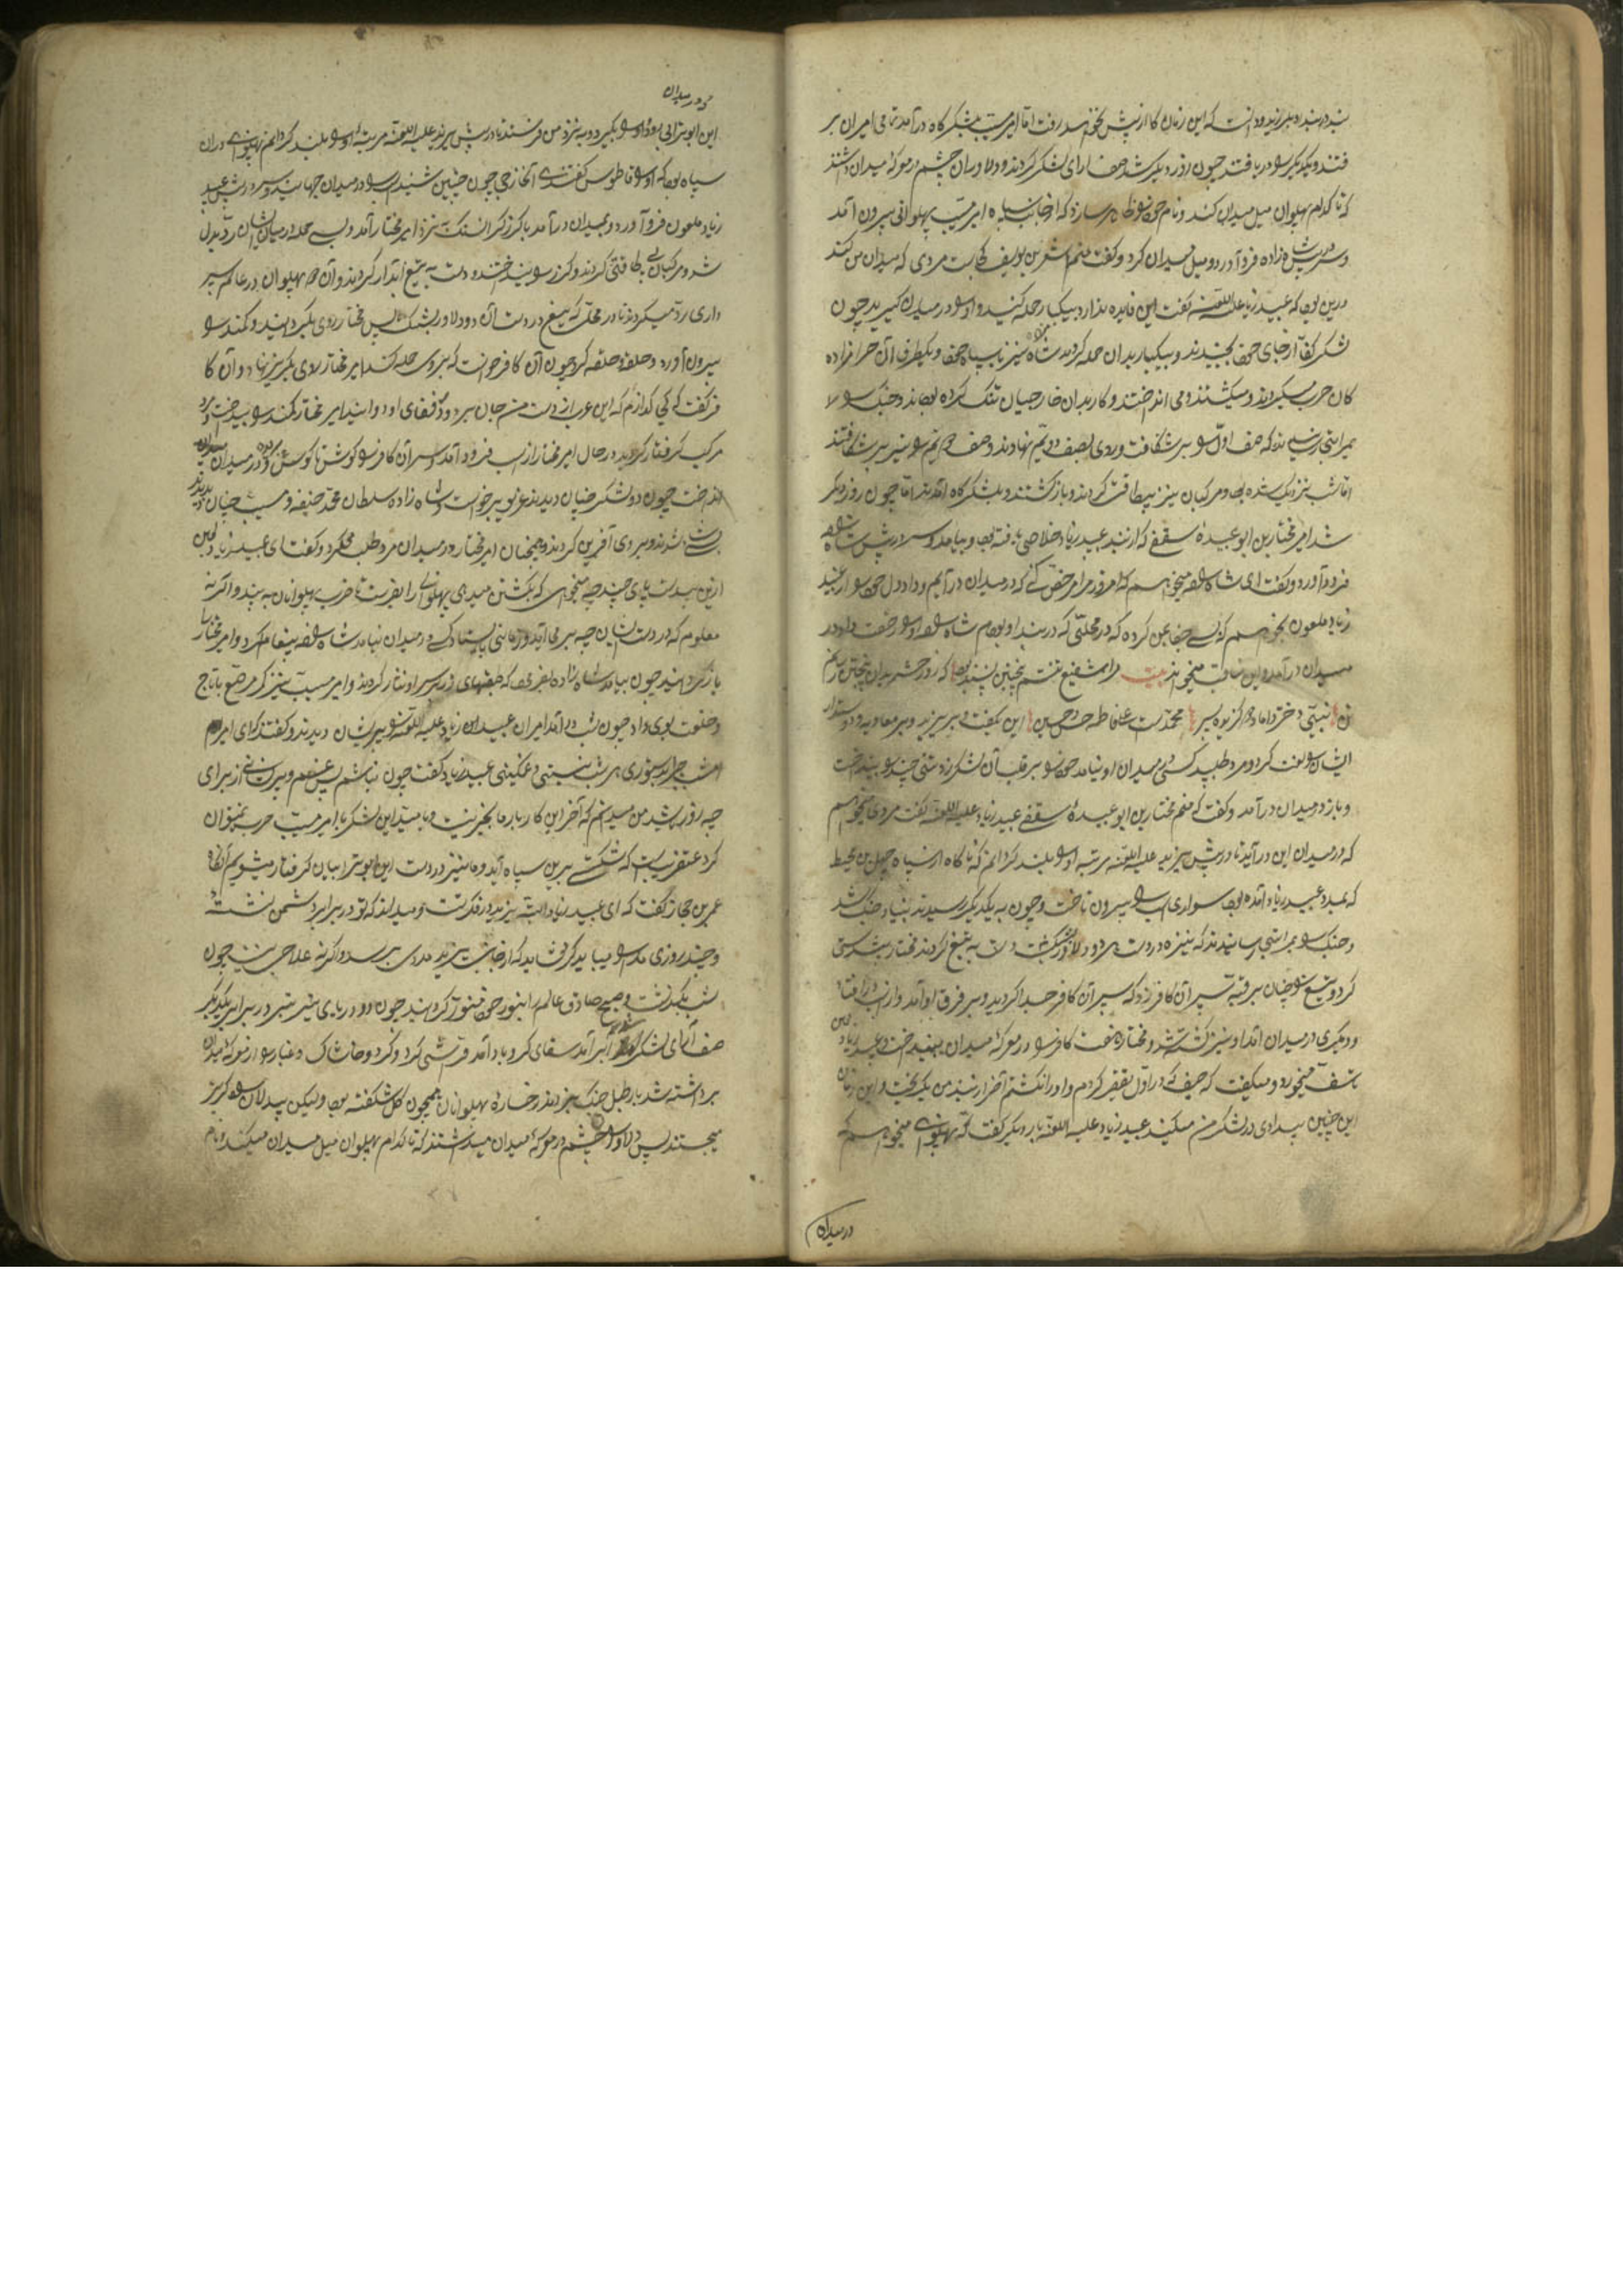 که این زمان کار از پیش نخواهد رفت اما امیر مسیب بلشکرگاه درآمد تمامی امیران بر
فتند و یکدیگر را دریافتند چون روز دیگر شد صف آرای لشکر کردند و دلاوران چشم در معرکهٔ میدان داشتند
که تا کدام پهلوان میل میدان کند و نام خود ظاهر سازد که از جانب سپاه امیر مسیب پهلوانی بیرون آمد
و سر در پیش شاه زاده فرو آورد و میل میدان کرد و گفت منم کجاست مردی که میدان من کند
درین بود که عبید زیاد علیه اللعنه گفت این فایده ندارد بیکبار حمله کنید و او را در میدان گیرید چون
لشکر کفار از جای خود بجنبیدند و بیکبار بدان حمله کردند شاه نیز با سپاه خود و یکطرف آن حرامزاده
کان حرب میکردند و میکشتند و می انداختند و کار بدان خارجیان تنگ کرده بودند و جنگ را
بمراتبی رسانیدند که صف اول را بر شکافت و روی بصف دویم نهادند و صف دویم را نیز بر شکافتند
اما شب نزدیک شده بود و مرکبان نیز بیطاقت گردیدند و باز گشتند و بلشکرگاه آمدند اما چون روز دیگر
شد امیر مختار بن ابو عبیدهٔ سقفی که از بند عبید زیاد خلاصی یافته بود بیامد و سر در پیش شاه
فرود آورد و گفت ای شاه میخواهم که امروز مرا مرخص کنی که در میدان درآیم و داد دل خود را از عبید
زیاد ملعون بخواهم که بسی جفا بمن کرده که در محلتی که در بند او بودم شاه او را رخصت داد در
میدان درآمد و این مناقب میخواند بیت مرا شفیع تنم پنجتن پسند بود که روز حشر بدان پنجتن رسانم
تن نبی و دختر و داماد و دو گزیده پسر محمد است علی فاطمه حسن حسین این بگفت و بر یزید و بر معاویه و دوستدار
ایشان را لعنت کرد و مرد طلبید کسی در میدان او نیامد خود را بر قلب آن لشکر زد و تنی چند را بینداخت
و باز در میدان درآمد و گفت که منم مختار بن ابو عبیدهٔ سقفی عبید زیاد علیه اللعنه گفت مردی میخواهم
که در میدان این درآید تا در پیش یزید علیه اللعنه مرتبهٔ او را بلند گردانم که ناگاه از سپاه چهل بن محیط
که بمدد عبید زیاد آمده بود سواری اسب را بیرون تاخت و چون به یکدیگر رسیدند بنیاد جنگ شد
و جنگ را بمراتبی رسانیدند که نیزه در دست هر دو دلاور شکست و دست به تیغ کردند مختار پیشدستی
کرد و تیغ را چنان بر قبهٔ سپر آن کافر زد که سر آن کافر جدا گردید و بر فرق او آمد و از اسب در افتاد
و دیگری در میدان آمد او نیز کشته شد و مختار هفت کافر را در معرکهٔ میدان بینداخت و عبید زیاد
تاسف میخورد و میگفت که حیف که در اول تقصیر کردم و او را نکشتم آخر از بند من بگریخت و این زمان
این چنین بیدادی در لشکر من میکند عبید زیاد علیه اللعنه بار دیگر گفت که پهلوانی میخواهم که
در میدان
در میدان
این ابوترابی رود و او را بگیرد و به نزد من فرستد تا در پیش یزید علیه اللعنه مرتبهٔ او را بلند گردانم پهلوانی در آن
سپاه بود که او را طوس گفتندی آن خارجی چون چنین شنید اسب را در میدان جهانید و سر در پیش عبید
زیاد ملعون فرو آورد و بمیدان درآمد با گرز گران سنگ نزد امیر مختار آمد و بسی حمله در میان ایشان رد بدل
شد و مرکبان بی طاقتی کردند و گرز را بینداختند و دست به تیغ آبدار کردند و آن دو پهلوان در عالم سپر
داری رد میکردند تا در محلی که تیغ در دست آن دو دلاور بشکست پس مختار روی بگردانید و کمند را
بیرون آورد و حلقه حلقه کرد چون آن کافر خواست که بر وی حمله کند امیر مختار روی بگریز نهاد و آن کا
فر گفت که کی گذارم که این عرب از دست من جان ببرد و از قفای او دوانید امیر مختار کمند را بینداخت و
مرکب گرفتار گردید در حال امیر مختار از اسب فرود آمد و سر آن کافر را گوش تا گوش برید و در میدان
انداخت چون دو لشکر چنان دیدند غریو برخواست و شاه زاده سلطان محمد حنیفه و مسیب چنان دیدند
شاد شدند و بر وی آفرین کردند و همچنان امیر مختار در میدان مرد طلب میکرد و گفت ای عبید زیاد لعین
ازین بیدست و پای چند چه میخواهی که بکشتن میدهی پهلوانی را بفرست تا ضرب پهلوانان به بیند و اگر نه
معلوم که در دست ایشان چه بر می آید و زمانی بایستاد کسی در میدان نیامد شاه پیغام کرد و امیر مختار را
باز گردانید چون بیامد شاه زاده بفرمود که طبقهای زر بر سر او نثار کردند و امیر مسیب نیز کمر مرصع با تاج
و خلعت بوی داد چون شب درآمد امیران عبید ابن زیاد علیه اللعنه را پریشان دیدند و گفتند که ای امیر
امشب چرا بدستوری هر شب ننشستی و غمگینی عبید زیاد گفت چون نباشم پس غم و پریشانی از برای
چه روز باشد من میدانم که آخر این کار با ما بخیر نیست و ما با این لشکر با امیر مسیب حرب نتوان
کرد عنقریب است که شکستی برین سپاه آید و ما نیز در دست این ابوترابیان گرفتار میشویم آنگاه
عمر بن حجاز گفت که ای عبید زیاد البته یزید در فکر تست و میداند که تو در برابر دشمن نشسته
و چند روزی مدارا میباید کرد شاید که از جانب یزید مددی برسد و اگر نه علاجی نیست چون
شب بگذشت و صبح صادق عالم را بنور خود منور گردانید چون دو دریای بیشتر در برابر یکدیگر
صف آرای لشکر شد ابر آمد سقای کرد و باد آمد فراشی کرد و گرد و خاشاک و غبار را از معرکهٔ میدان
برداشته شد باز طبل جنگ بزدند رخسارهٔ پهلوانان همچون گل شکفته بود و لیکن بیدلان راه گریز
میجستند پس دلاوران چشم در معرکهٔ میدان میداشتند که تا کدام پهلوان میل میدان میکند و نام